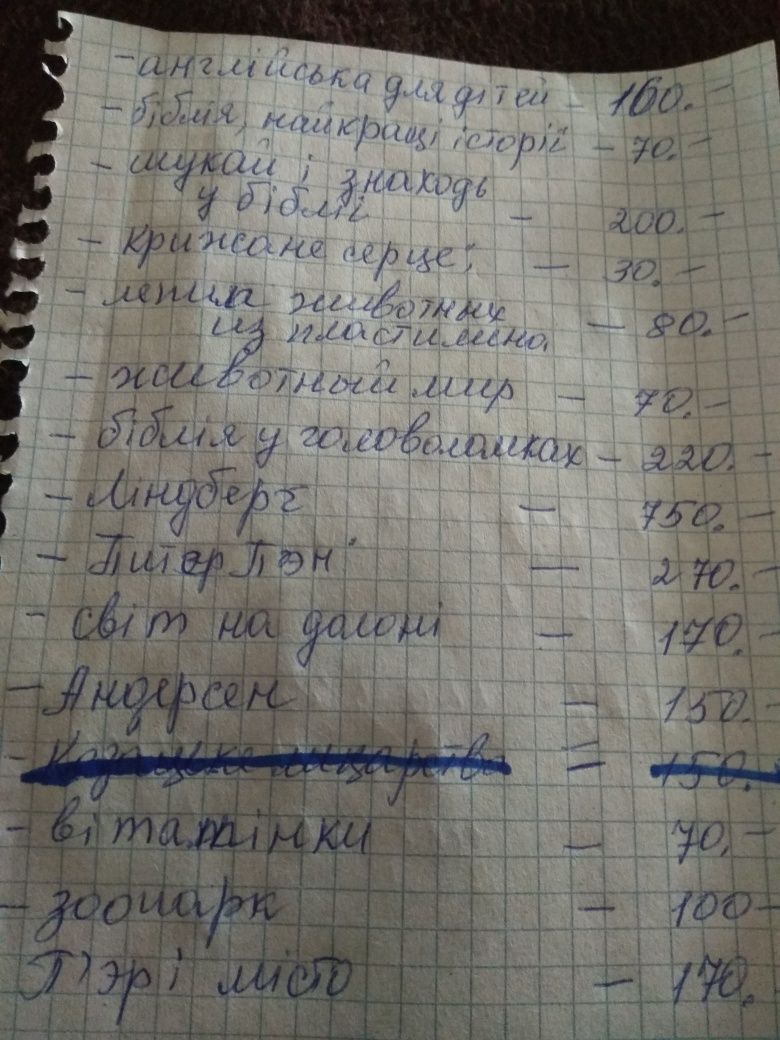 - англійська для дітей - 160.-
- біблія, найкращі історії - 70.-
- шукай і знаходь
у біблії - 200.-
- крижане серце; - 30.-
- лепила животных
из пластилина - 80.-
- животный мир - 70.-
- біблія у головоломках - 220.-
- Ліндберг - 750.-
- Питер Пэн - 270.-
- світ на долоні - 170.-
- Андерсен - 150.-
- Козацьке лицарство = 150.
- вітамінки - 70.-
- зоопарк - 100-
П'эр і місто - 170.